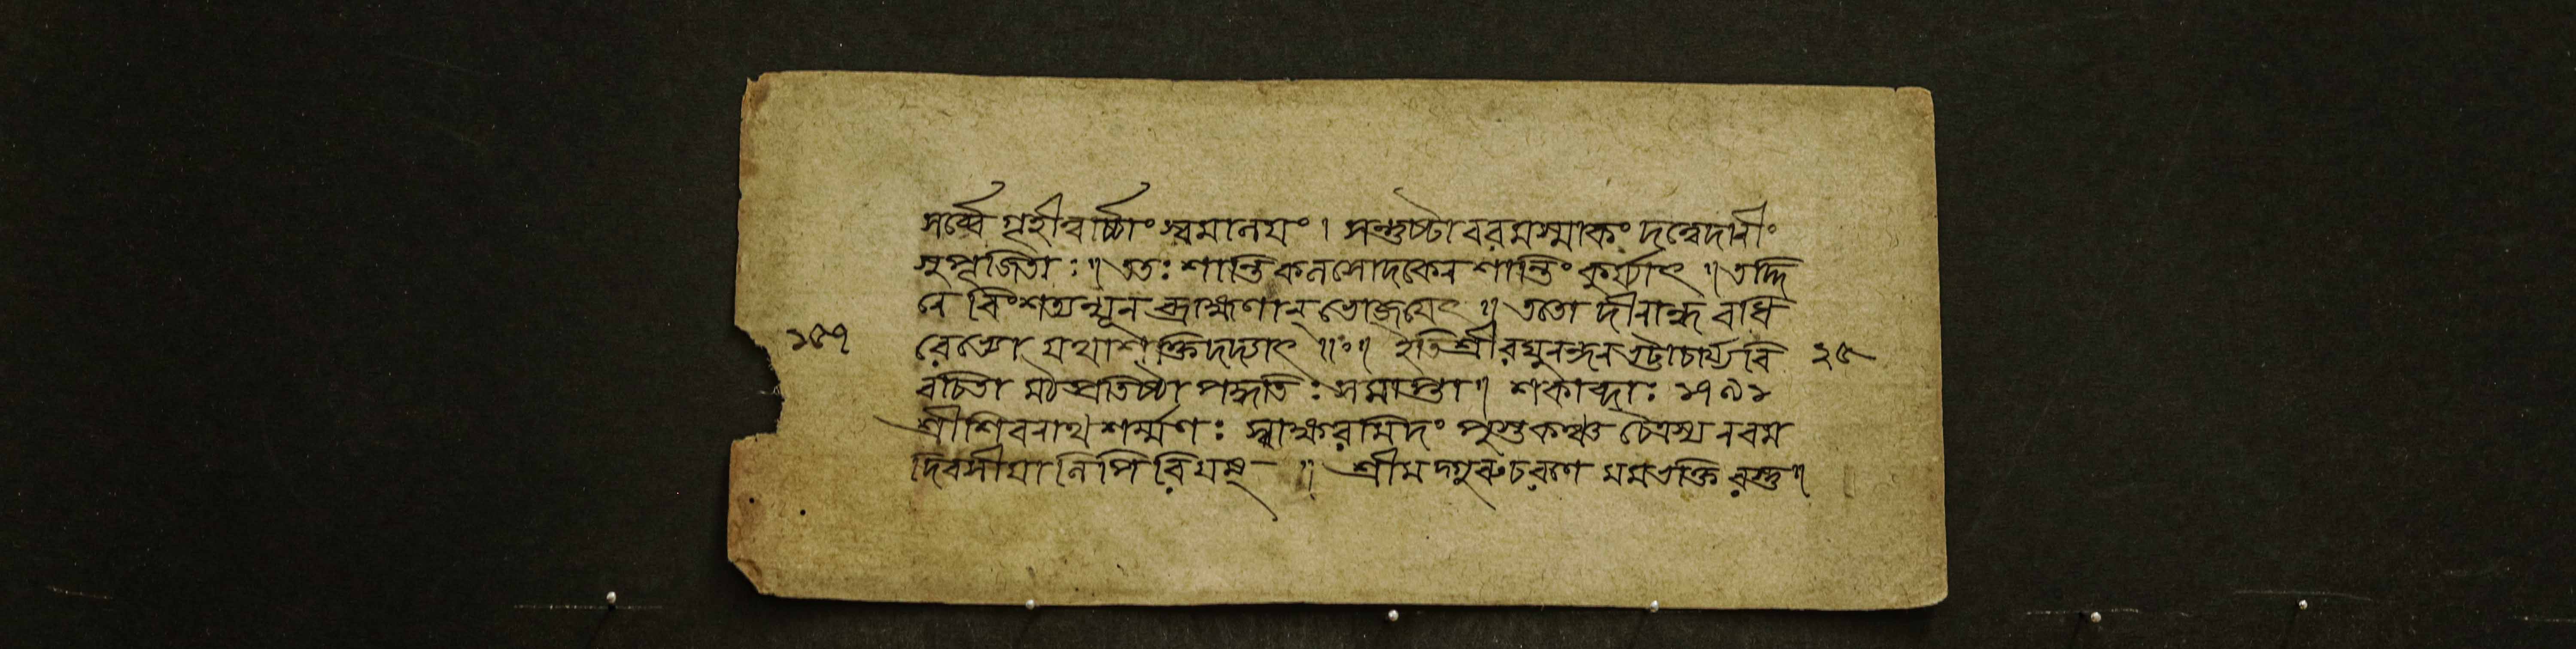 সর্ব্বে গৃহীত্বার্চ্চাং স্বমালয়ং। সন্তুষ্টা বরমস্মাকং দত্ত্বেদানীং
সুপূজিতাঃ॥ ততঃ শান্তিকলসোদকেন শান্তিং কুর্য্যাৎ॥ তদ্দি
নে বিংশত্যন্যূন ব্রাহ্মণান্ ভোজয়েৎ॥ ততো দীনান্ধ বধি
১৫৭ রেভ্যো যথাশক্তি দদ্যাৎ॥ঃ॥ ইতি শ্রীরঘুনন্দন ভট্টাচার্য্য বি ২৫
রচিতা মঠপ্রতিষ্ঠা পদ্ধতিঃ সমাপ্তা॥ শকাব্দাঃ ১৭৯১
শ্রীশিবনাথ শর্ম্মণঃ স্বাক্ষরমিদং পুস্তকঞ্চ চৈত্রস্য নবম
দিবসীয়া লিপিরিয়ম্॥ শ্রীমদ্গুরুচরণে মম ভক্তি রস্তু॥